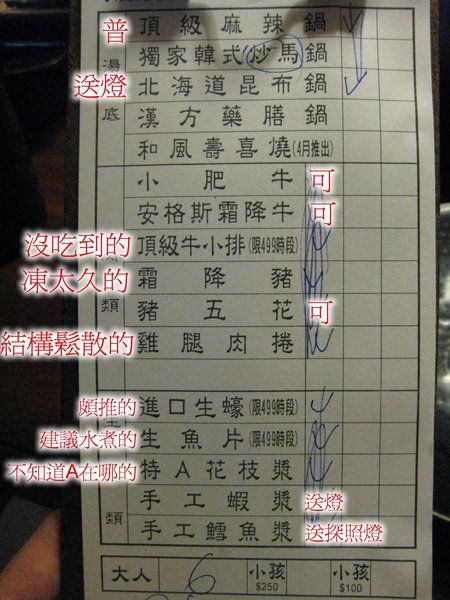 普 頂級麻辣鍋
獨家韓式炒馬鍋
送燈 北海道昆布鍋
漢方藥膳鍋
和風壽喜燒(4月推出)
湯底
小肥牛 可
安格斯霜降牛 可
沒吃到的 頂級牛小排(限499時段)
凍太久的 霜降豬
豬五花 可
結構鬆散的 雞腿肉捲
類
頗推的 進口生蠔(限499時段)
建議水煮的 生魚片(限499時段)
不知道A在哪的 特A花枝漿
手工蝦漿 送燈
手工鱈魚漿 送探照燈
類
大人 6 小孩 $250 小孩 $100